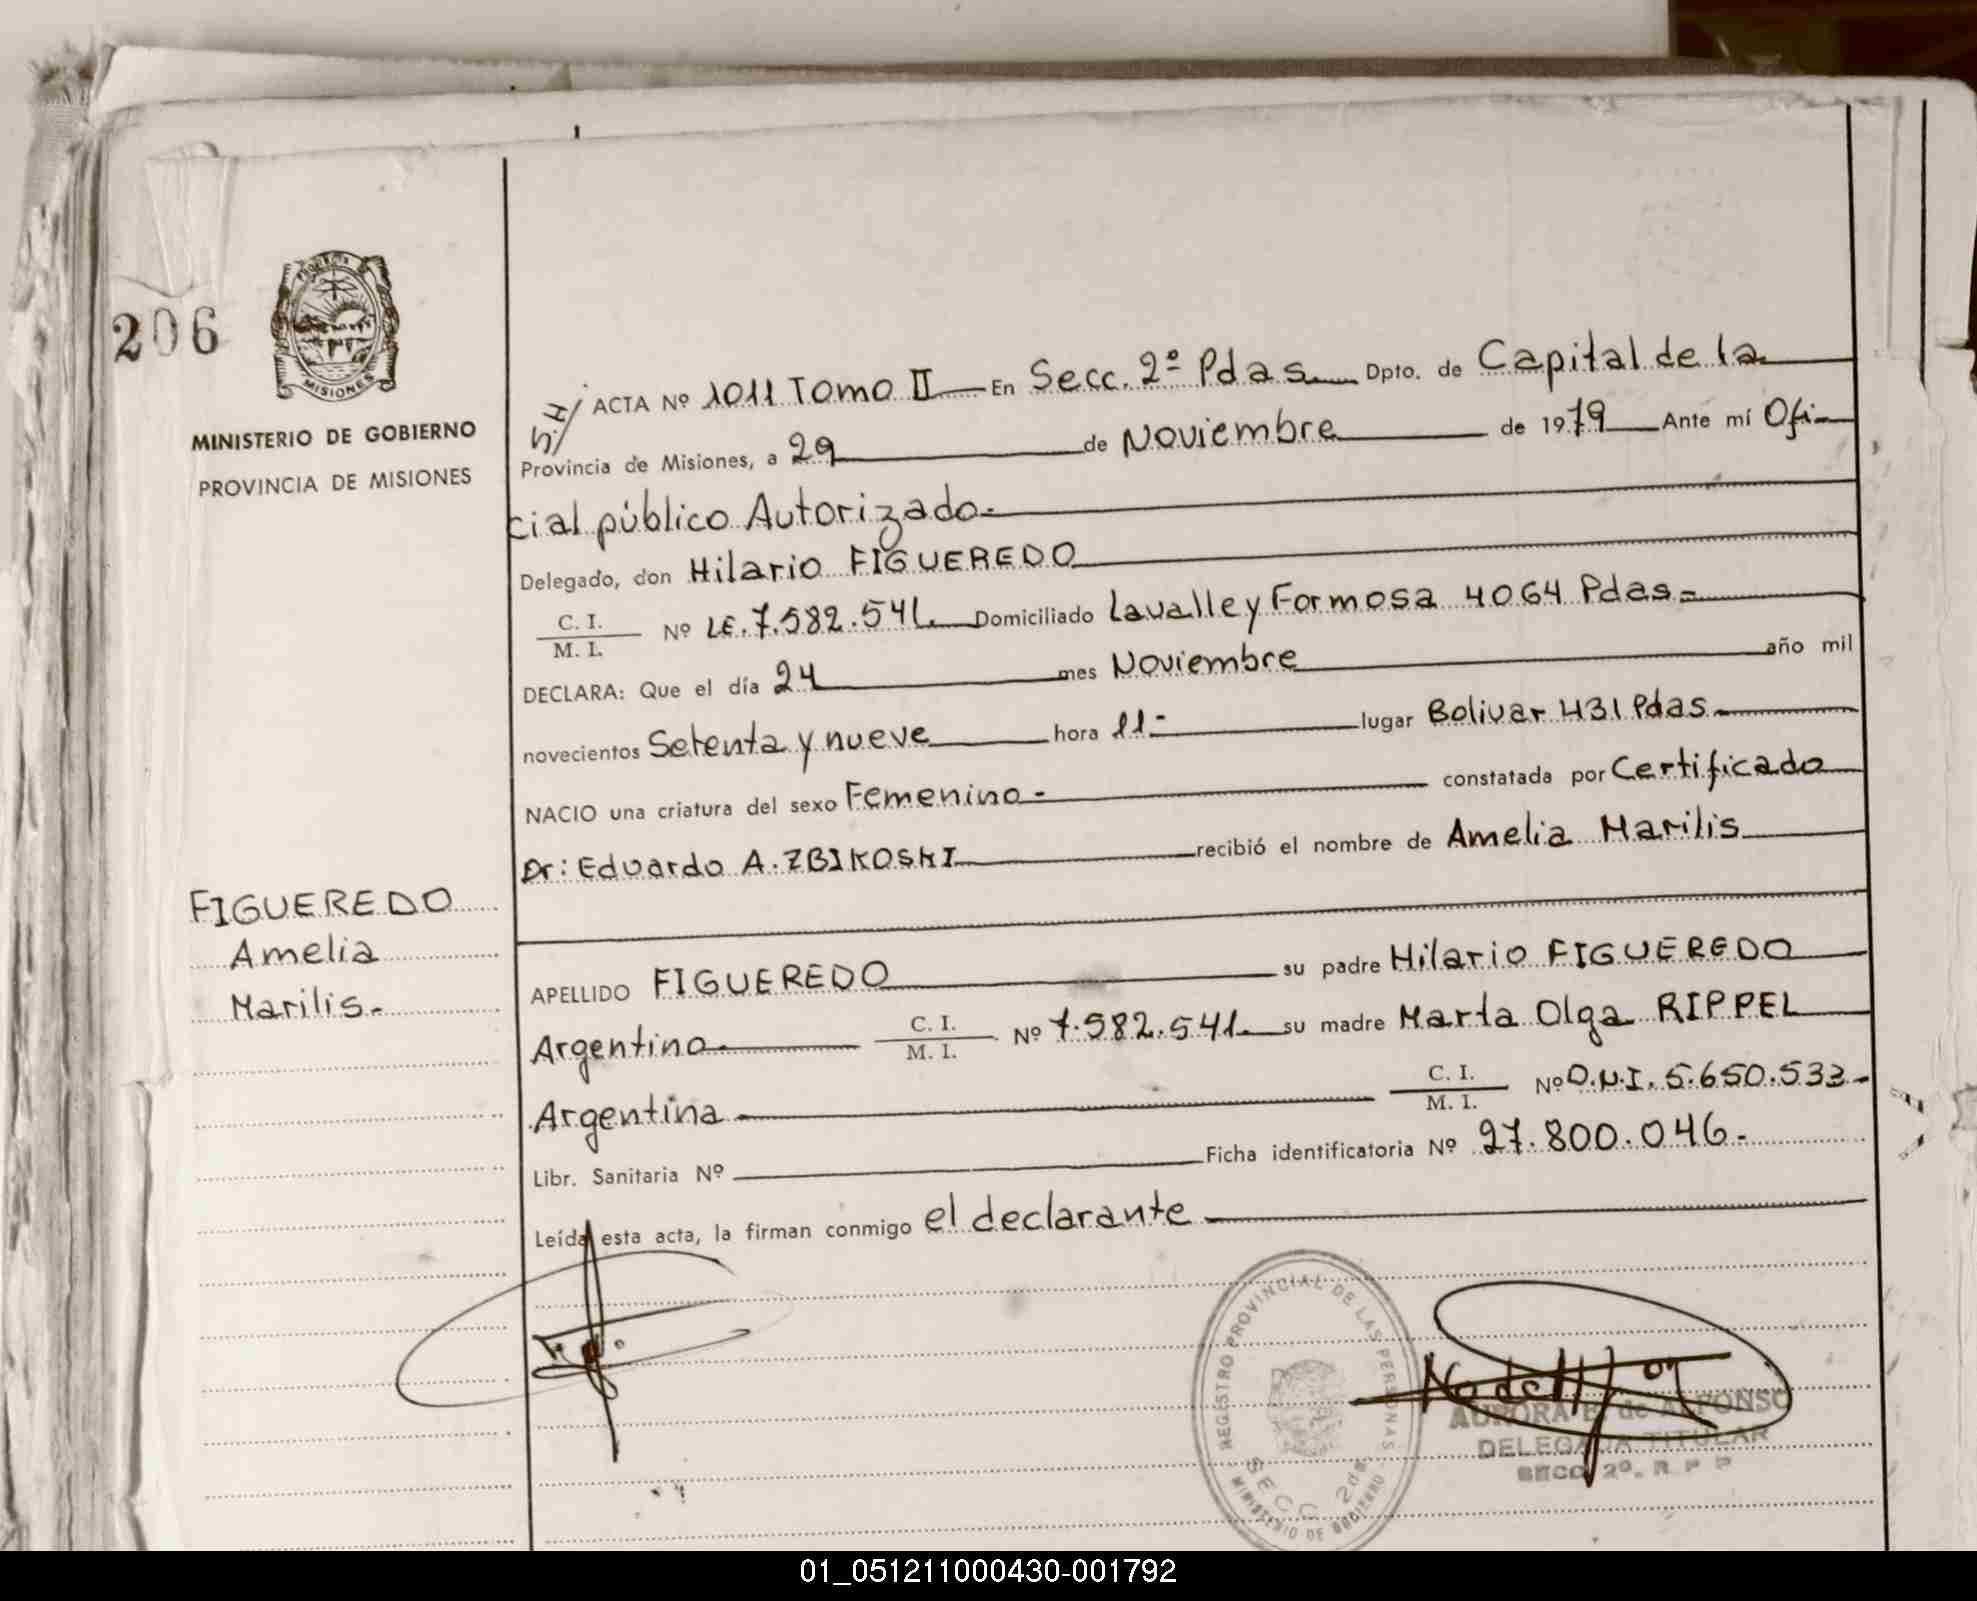 206
PROVINCIA
MISIONES
MINISTERIO DE GOBIERNO
PROVINCIA DE MISIONES
FIGUEREDO
Amelia
Marilis.-
ACTA Nº 1011 Tomo II En Secc. 2º Pdas. Dpto. de Capital de la
Provincia de Misiones, a 29 de Noviembre de 1979 Ante mí Ofi-
cial público Autorizado.-
Delegado, don Hilario FIGUEREDO
C. I.
M. I. Nº LE. 7.582.541. Domiciliado Lavalle y Formosa 4064 Pdas.-
DECLARA: Que el día 24 mes Noviembre año mil
novecientos Setenta y nueve hora 11:- lugar Bolivar 431 Pdas.-
NACIO una criatura del sexo Femenino.- constatada por Certificado
Dr: Eduardo A. ZBIKOSKI recibió el nombre de Amelia Marilis
APELLIDO FIGUEREDO su padre Hilario FIGUEREDO
Argentino.- C. I. M. I. Nº 7.582.541.- su madre Marta Olga RIPPEL
Argentina - C. I. M. I. Nº D.N.I. 5.650.533.-
Libr. Sanitaria Nº Ficha identificatoria Nº 27.800.046.-
Leída esta acta, la firman conmigo el declarante
REGISTRO PROVINCIAL DE LAS PERSONAS
SECC. 2da
MINISTERIO DE GOBIERNO
AURORA de ALFONSO
DELEGADA TITULAR
SECC 2º. R P P
01_051211000430-001792